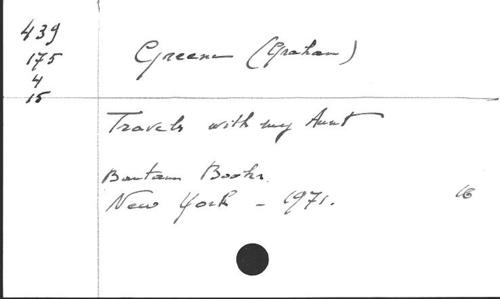 439
175
4
15
Greene (Graham)
Travels with my Aunt
Bantam Books.
New York - 1971.
16